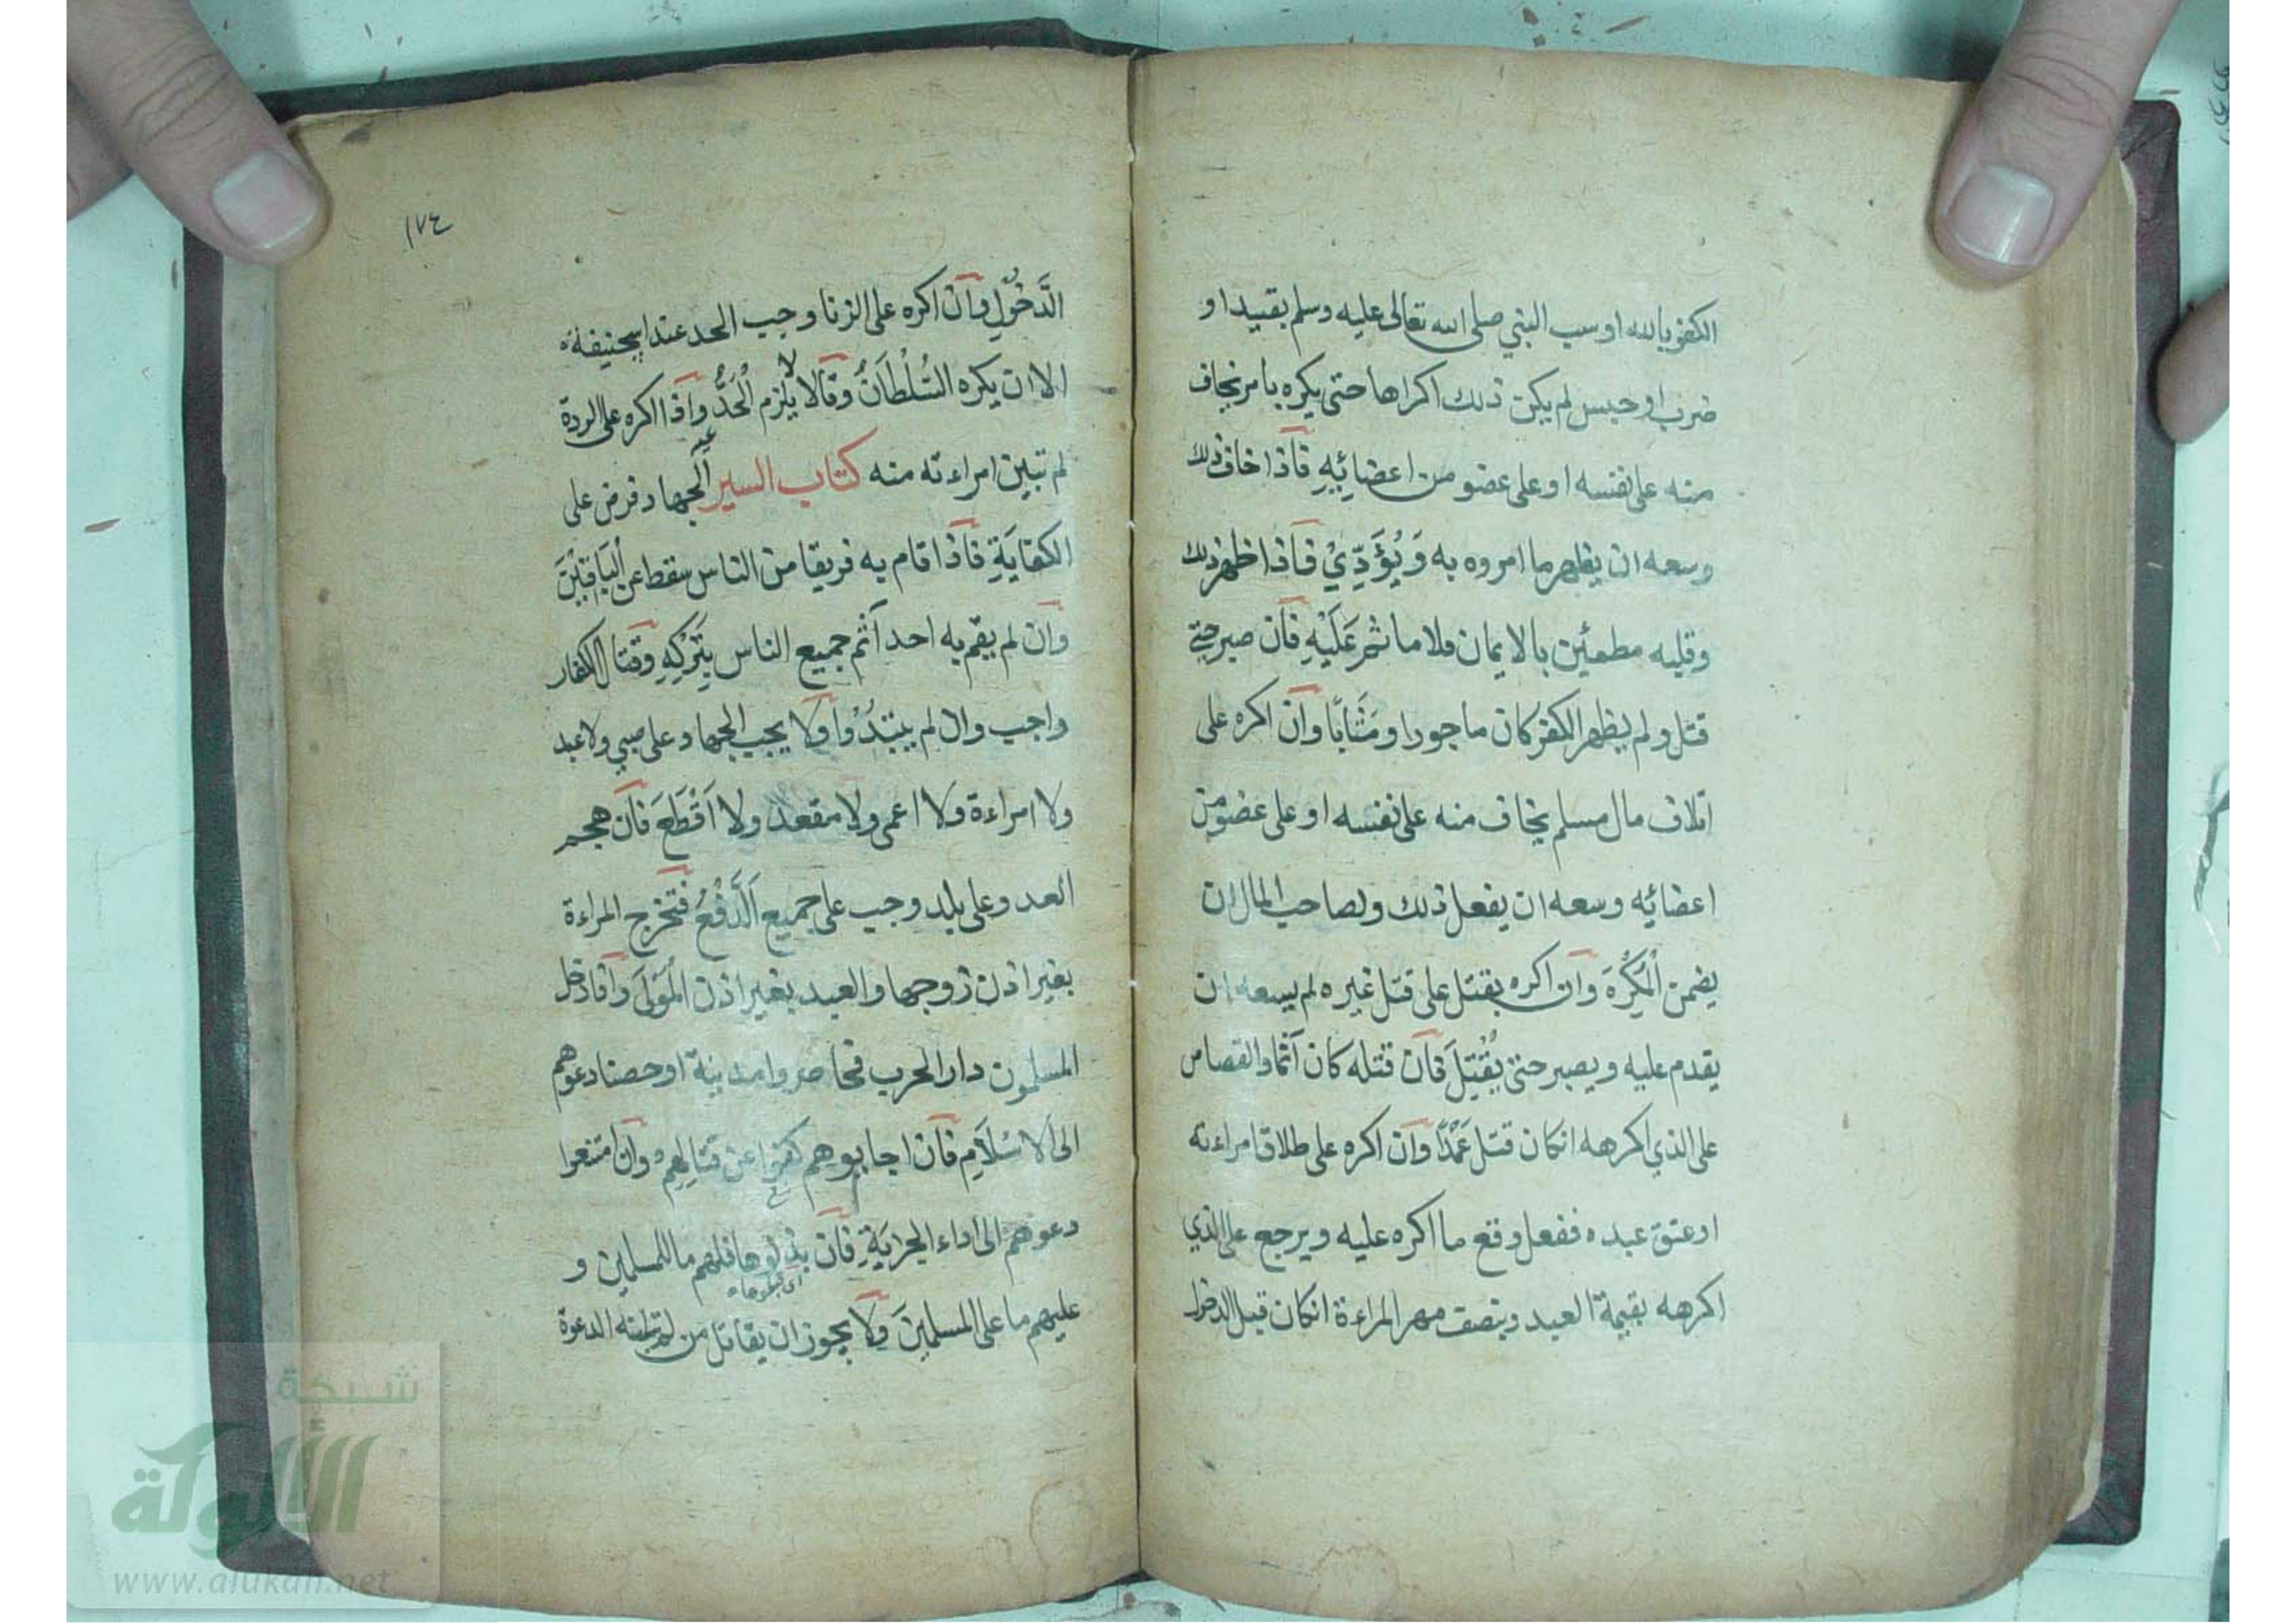 الكفر بالله او سب النبي صلى الله تعالى عليه وسلم بقيد او
ضرب او حبس لم يكن ذلك اكراها حتى يكره بامر نخاف
منه على نفسه او على عضو من اعضائِهِ فَاذا خاف ذلك
وسعه ان يظهر ما امروه به وَيُؤَدِّيْ فاذا اظهر ذلك
وقلبه مطمئين بالايمان فلا ماثم عَلَيْهِ فَان صبر حتى
قتل ولم يظهر الكفر كان ماجورا ومَثَابًا وَان اكره على
اتلاف مال مسلم يخاف منه على نفسه او على عضو من
اعضائه وسعه ان يفعل ذلك ولصاحب المال ان
يضمن اْلمُكْرِهَ وَان اكره بقتل على قتل غيره لم يسعه ان
يقدم عليه ويصبر حتى يُقْتَلَ فَان قتله كان آثما والقصاص
على الذي اكرهه انكان قتل عَمْدًا وَان اكره على طلاق امراءته
او عتق عبده ففعل وقع ما اكره عليه ويرجع على الذي
اكرهه بقيمة العبد وبنصف مهر المراءة انكان قبل الدخول
١٧٤
الدَّخُوْلِ وَان اكره على الزنا وجب الحد عند ابيحنيفة
الا ان يكره السُّلْطَانُ وقَالا لا يلزم اْلحَدُّ وَاذا اكره على الردة
لم تبين امراءته منه كتاب السير اَلجهاد فرض على
الكفايَةِ فَاذا اقام به فريقا من الناس سقط عن اْلبَاقِيْنَ
وَان لم يقم به احد آثم جميع الناس بِتَرْكِهِ وَقتال الكفار
واجب وان لم يبتدُؤْا وَلا يجب الجهاد على صبي ولا عبد
ولا امراءة ولا اعمى ولا مقعد ولا اَقْطَعَ فَان هجم
العدو على بلد وجب على جميع اَلدَّفْعُ فَتخرج المراءة
بغير اذن زوجها والعبد بغير اذن اْلمَوْلَى وَاذا دخل
المسلمون دار الحرب فحاصروا مدينة او حصنا دعوهم
الى الاسْلَامِ فَان اجابوهم كفوا عن قتالِهِمْ وَان امتنعوا
دعوهم الى اداء الجزيَةِ فَان بذلوها فلهم ما للمسلمين و
عليهم ما على المسلمِينَ وَلا يجوز ان يقاتل من لم تبلغه الدعوة
شبكة
الألوكة
www.alukah.net